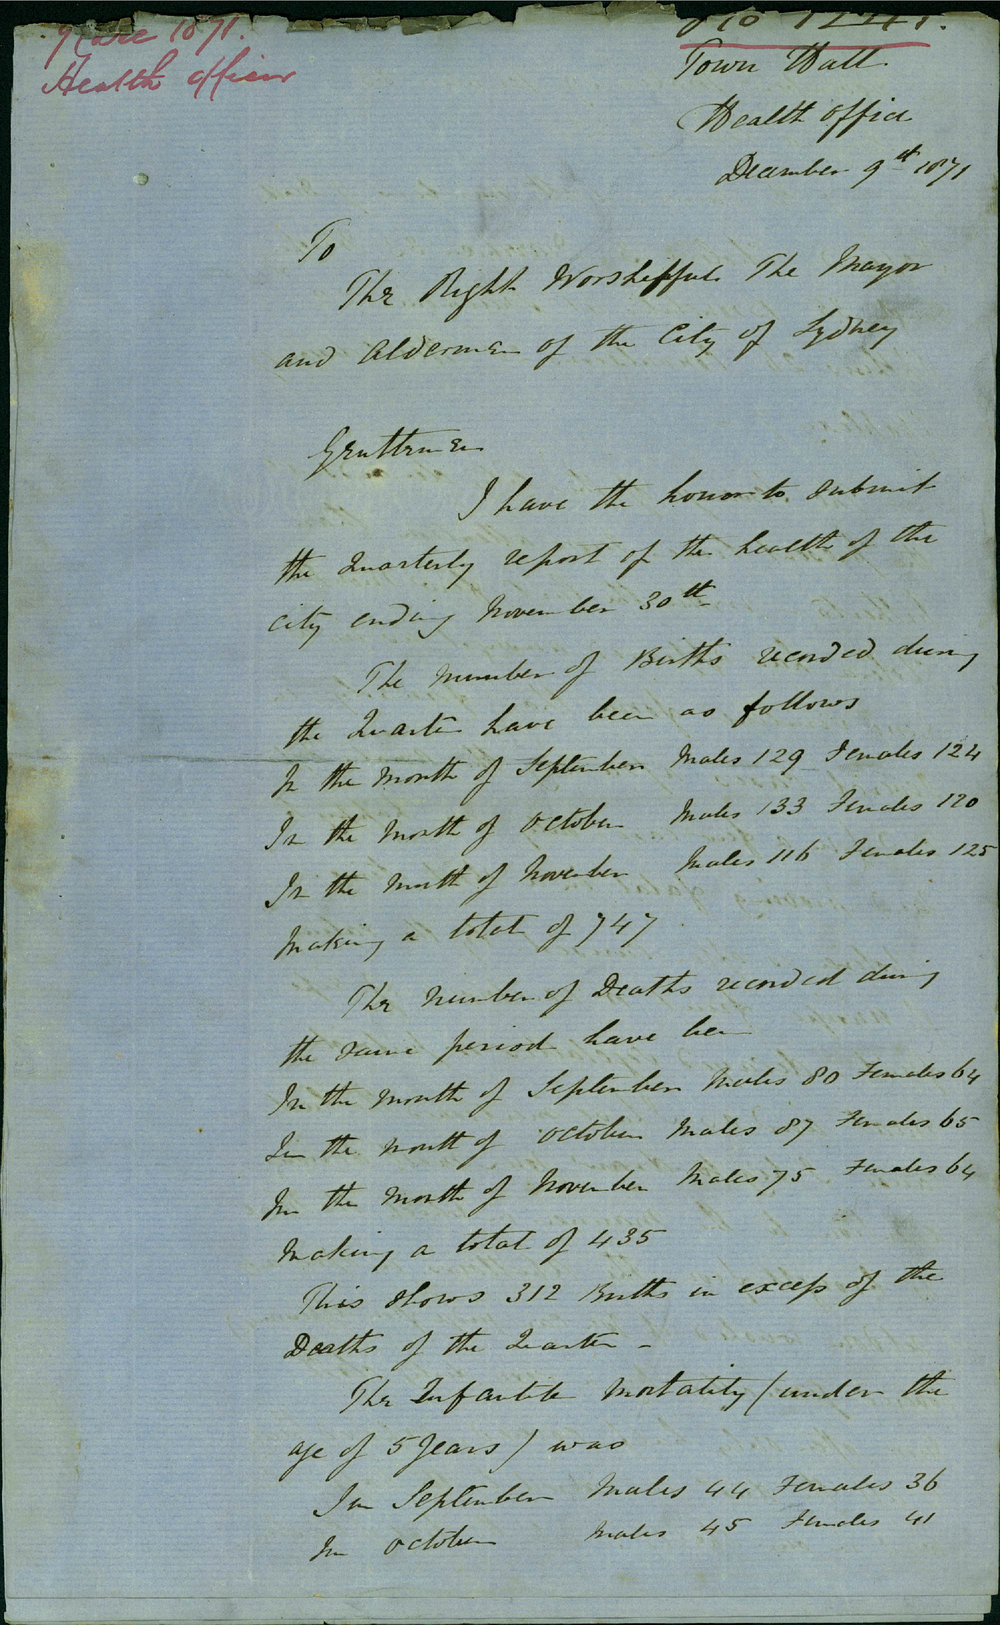 9 Dec 1871.
Health Officer
No 1224
Town Hall
Health Office
December 9th 1871
To
The Right Worshipful The Mayor
and Aldermen of the City of Sydney
Gentlemen
I have the honor to submit
the Quarterly report of the health of the
city ending November 30th
The number of Births recorded during
the Quarter have been as follows
In the month of September Males 129 Females 124
In the month of October Males 133 Females 120
In the month of November Males 116 Females 125
making a total of 747
The number of Deaths recorded during
the same period have been
In the month of September Males 80 Females 64
In the month of October Males 87 Females 65
In the month of November Males 75 Females 64
making a total of 435
This shows 312 Births in excess of the
Deaths of the Quarter -
The Infantile mortality (under the
age of 5 years) was
In September Males 44 Females 36
In October Males 45 Females 41